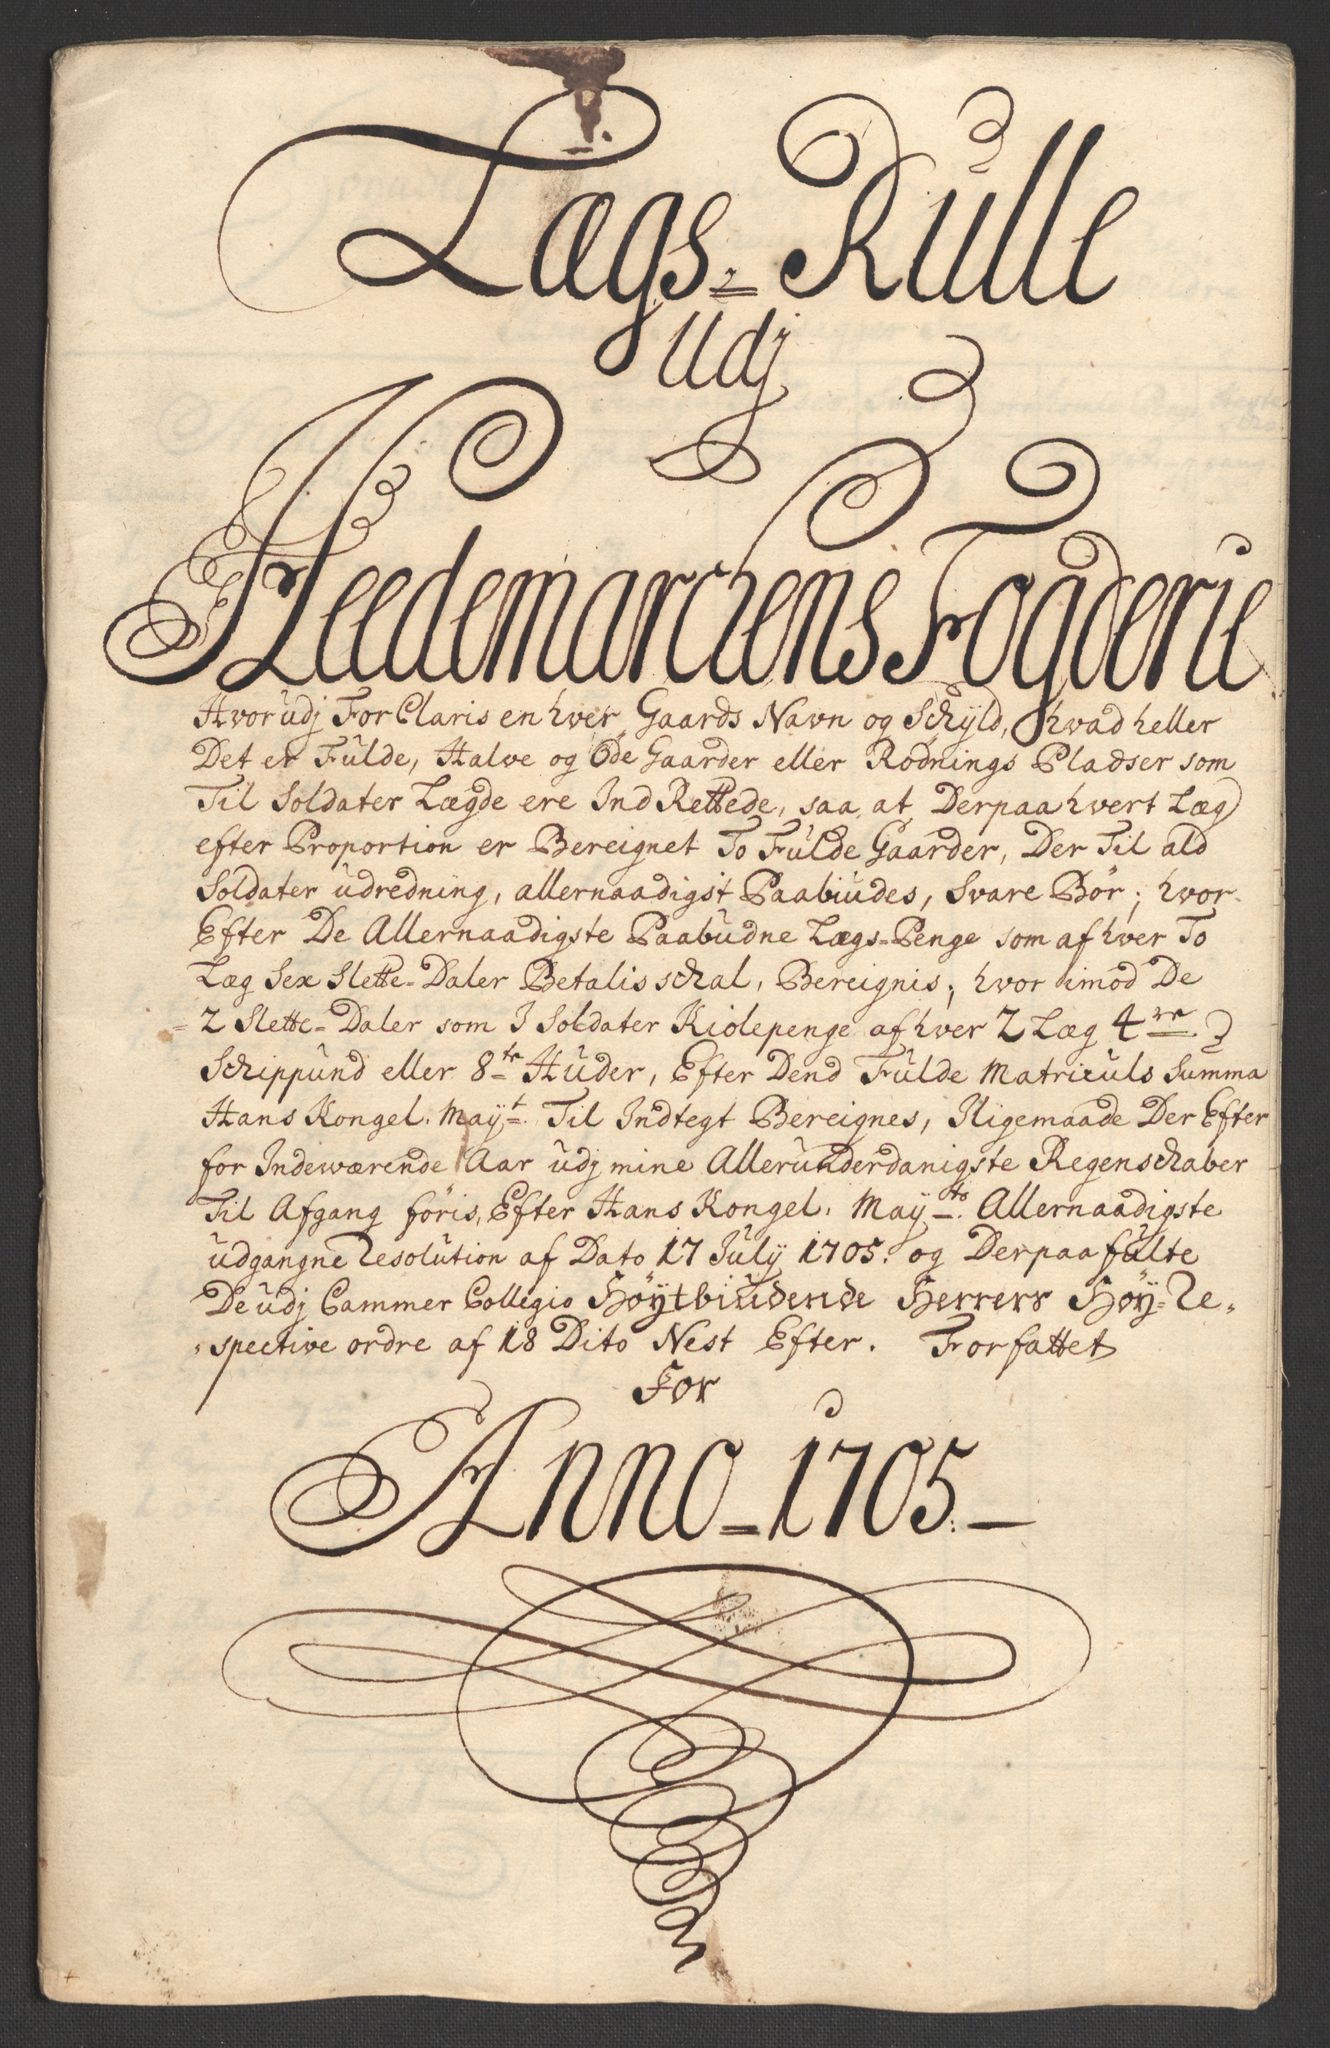 1.
Lægs-Rulle
Udj
Heedemarchens Fogderie
Hvorudj ForClaris en hver Gaards Navn og Schyld, hvad heller
Det er Fulde, Halve og Öde Gaarder eller Rödnings Pladser som
Til Soldater Lægde ere IndRettede, saa at Derpaa hvert Læg
efter Proportion er Bereignet To Fulde Gaarder, Der Til ald
Soldater udredning, allernaadigst Paabiudes, Svare Bör; hvor-
Efter De Allernaadigste Paabudne Lægs-Penge som af hver To
Læg Sex Slette-Daler Betalis schal, Bereignis; hvor imod De
2 Slette-Daler som I Soldater Kiolepenge af hver 2 Læg 4re
Schippund eller 8te Huder, Efter Dend Fulde Matriculs Summa
Hans Kongel. Mayt. Til Indtegt Bereignes, Iligemaade Der Efter
for Indeværende Aar udj mine Allerunderdanigste Regenschaber
Til Afgang föris, Efter Hans Kongel. Mayts. Allernaadigste
udgangne Resolution af Dato 17 July 1705. og Derpaa fulte
De udj Cammer Collegio Höytbiudende Herrers Höy-Re-
spective ordre af 18 Dito Nest Efter. Forfattet
For
Anno-1705.